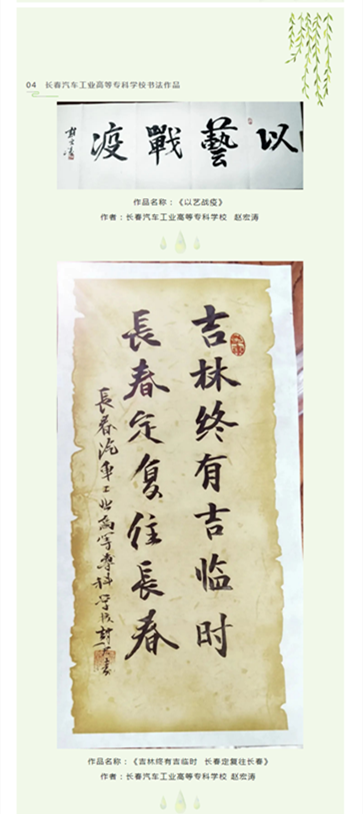 04 长春汽车工业高等专科学校书法作品
以藝戰疫
作品名称：《以艺战疫》
作者：长春汽车工业高等专科学校 赵宏涛
吉林终有吉临时
長春定复往長春
長春汽车工业高等專科学校
作品名称：《吉林终有吉临时 长春定复往长春》
作者：长春汽车工业高等专科学校 赵宏涛